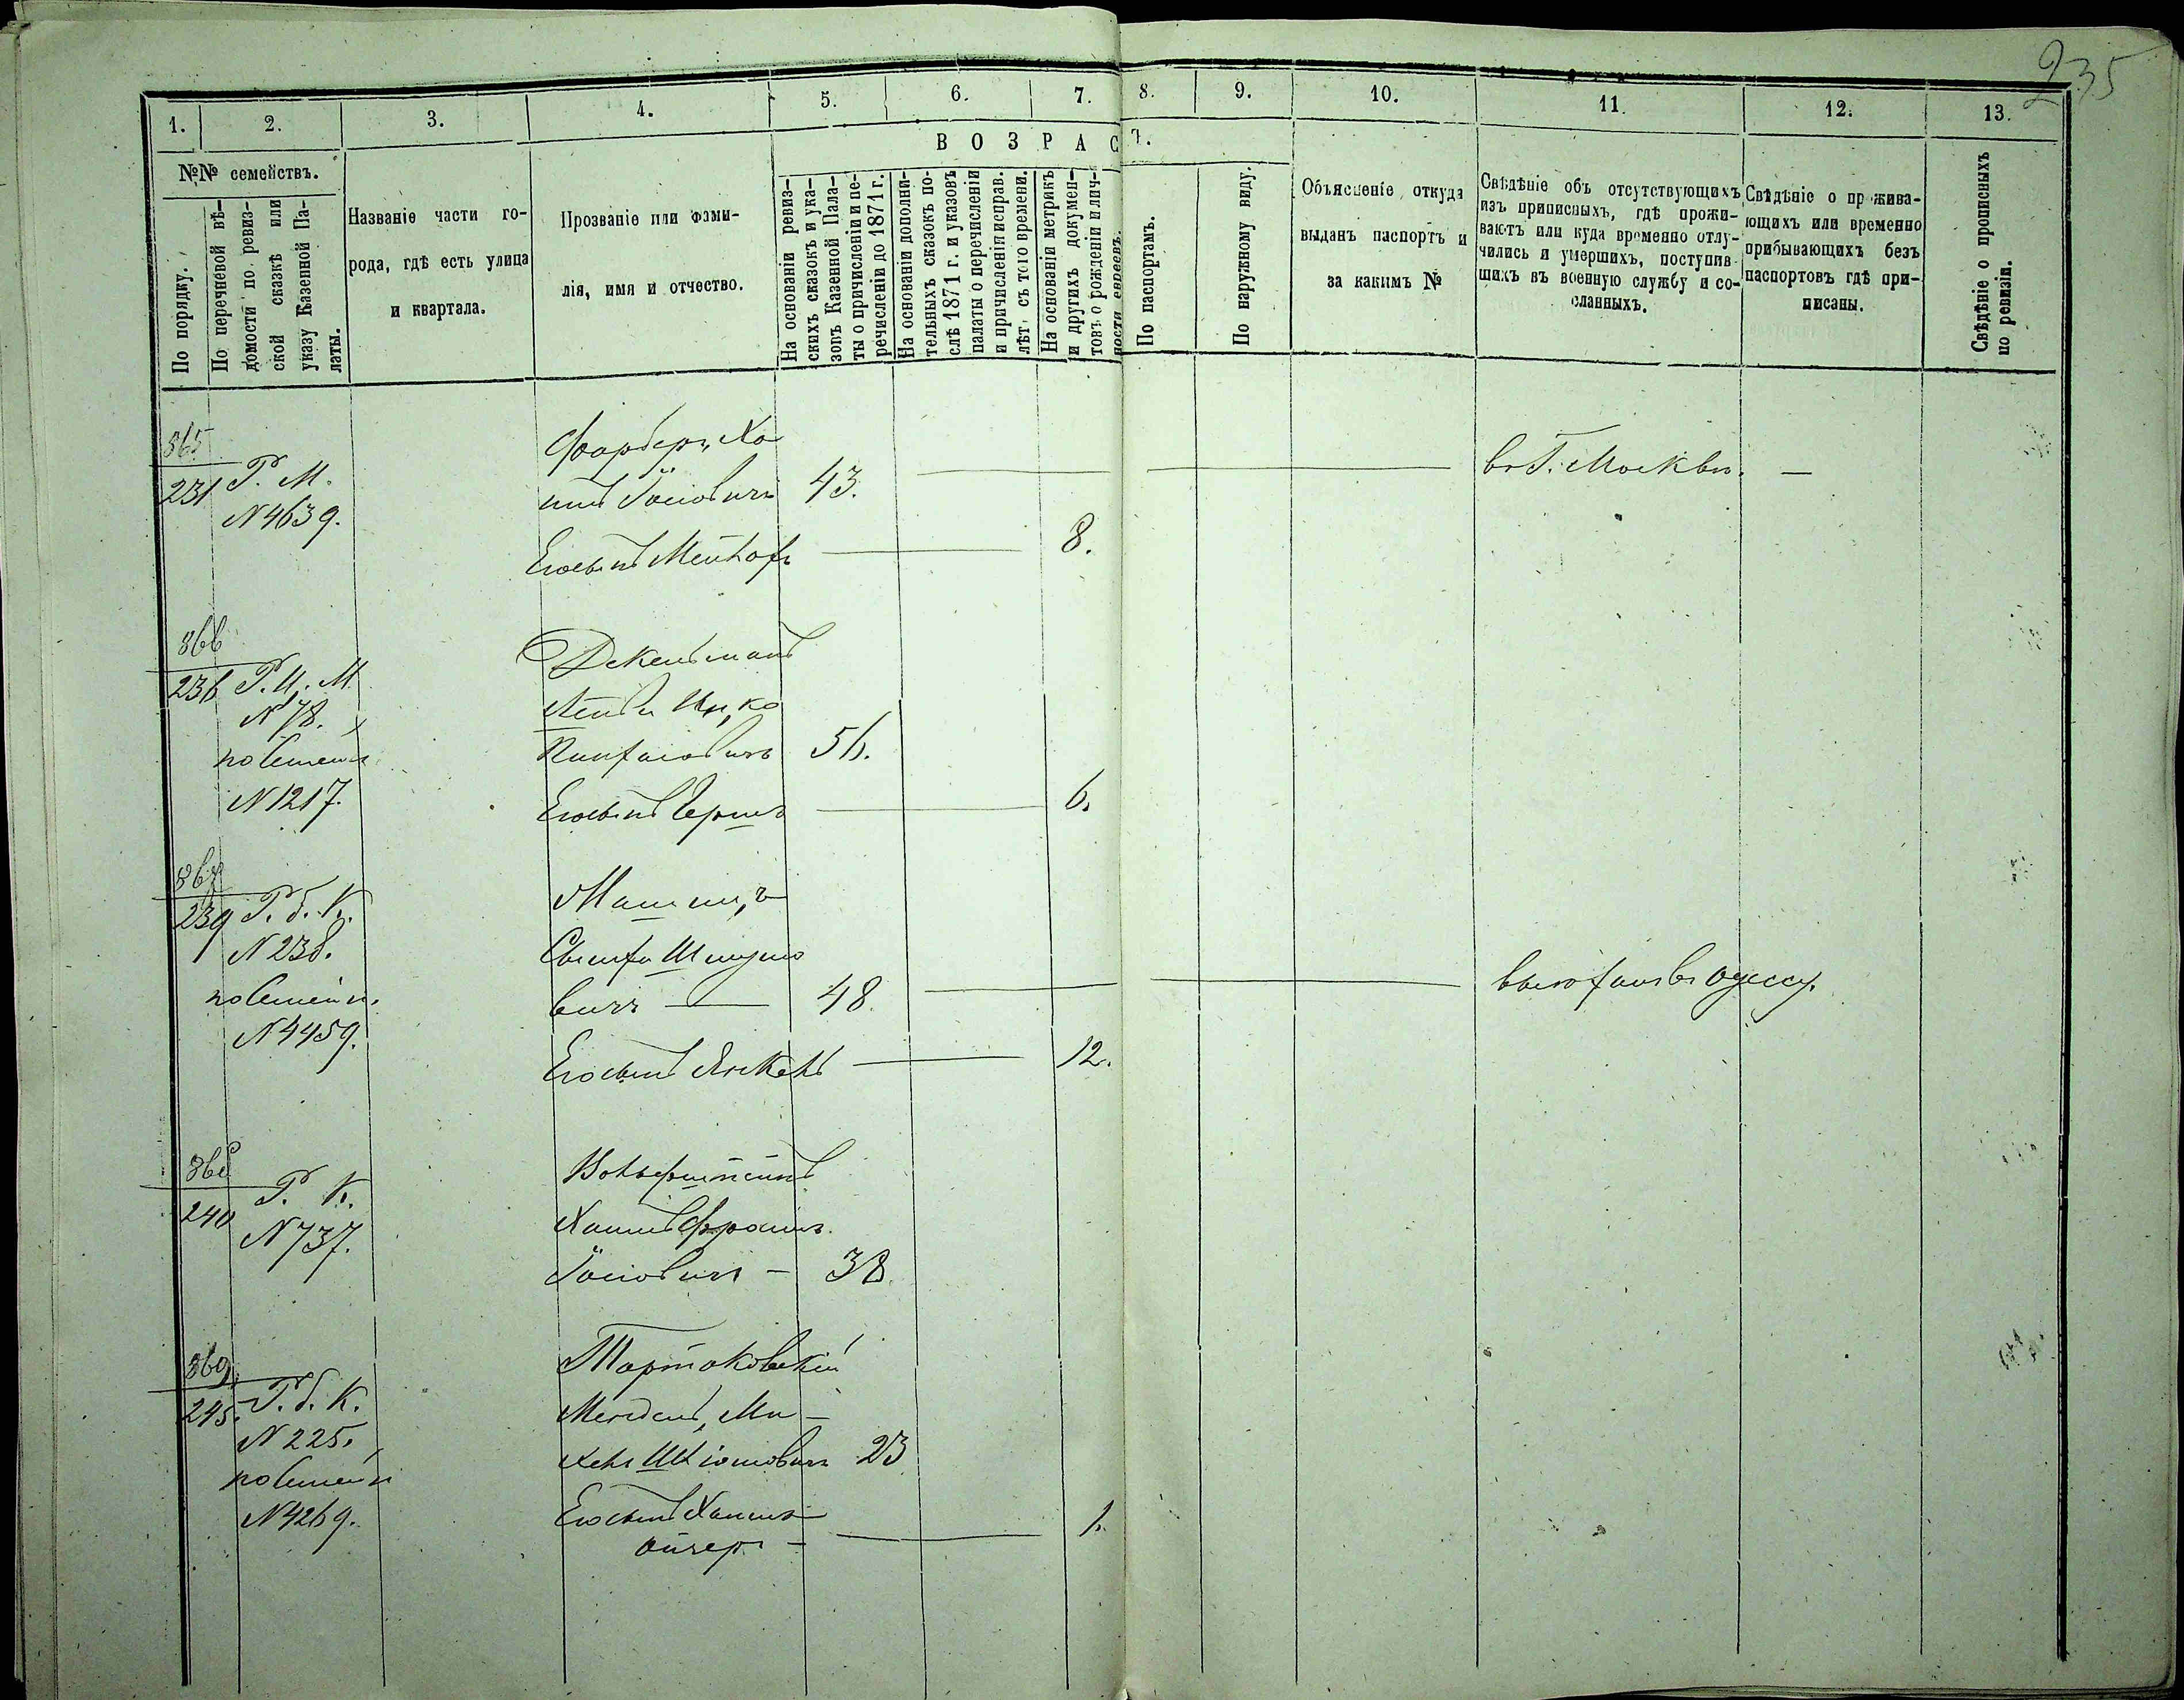 235
1. 2. 3. 4. 5. 6. 7. 8. 9. 10. 11. 12. 13.
№№ семействъ.
В О З Р А С Т.
По порядку.
По перечневой вѣ-
домости по ревиз-
ской сказкѣ или
указу Казенной Па-
латы.
Названіе части го-
рода, гдѣ есть улица
и квартала.
Прозваніе или фами-
лія, имя и отчество.
На основаніи ревиз-
скихъ сказокъ и ука-
зовъ Казенной Пала-
ты о причисленіи и пе-
речисленіи до 1871 г.
На основаніи дополни-
тельныхъ сказокъ по-
слѣ 1871 г. и указовъ
палаты о перечисленіи
и причисленіи исправ.
лѣтъ съ того времени.
На основаніи метрикъ
и другихъ докумен-
товъ о рожденіи и лич-
ности евреевъ.
По паспортамъ.
По наружному виду.
Объясненіе откуда
выданъ паспортъ и
за какимъ №
Свѣдѣніе объ отсутствующихъ
изъ приписныхъ, гдѣ прожи-
ваютъ или куда временно отлу-
чились и умершихъ, поступив-
шихъ въ военную службу и со-
сланныхъ.
Свѣдѣніе о прожива-
ющихъ или временно
прибывающихъ безъ
паспортовъ гдѣ при-
писаны.
Свѣдѣніе о прописныхъ
по ревизіи.
865
231 Р. М.
N 4639.
Фарберъ, Ха
имъ Іосіовичъ 43. — — въ Г. Москвѣ. —
Его сынъ Меилохъ — 8.
866
236 Р. И. М.
N 78.
по Семейн.
N 1217.
Декельманъ
Пинхасовичъ 56.
Его сынъ Гершъ — 6.
867
239 Р. б. К.
N 238.
по Семейн.
N 4459.
Шмуло
вичъ — 48. — — въ Одессу.
Его сынъ Янкель — 12.
868
240 Р. К.
N 737.
Вольфштейнъ
Хаимъ Фроимъ
Іосіовичъ — 38
869
245. Р. б. К.
N 225.
по Семейн
N 4269.
Тартаковскій
Мендель, Ми-
хель Шліомовичъ 23
Его сынъ Хаимъ
Ойзеръ — — 1.